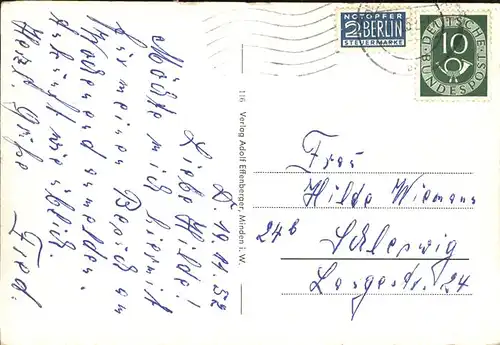 D. 19.11.52
Liebe Hilde!
Möchte mich hiermit
für meinen Besuch am
Wochenend anmelden.
Ankunft wie üblich.
Herzl. Grüße
Fred.
116 Verlag Adolf Effenberger, Minden i. W.
NOTOPFER
2 BERLIN
STEUERMARKE
DEUTSCHE BUNDESPOST
10
Frau
Hilde Wiemann
24b Schleswig
Langestr. 24